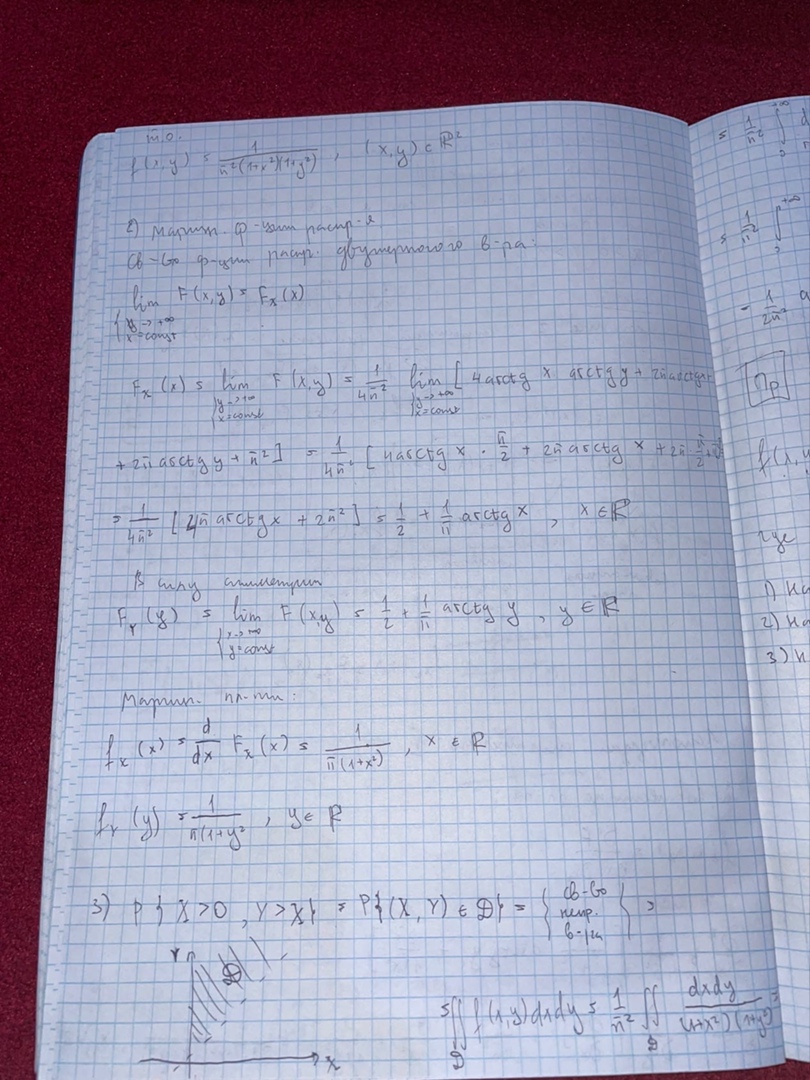 т.о.
f(x,y) = 1/(π²(1+x²)(1+y²)) , (x,y) ∈ ℝ²
2) маргин. ф-ции распр-я
св-во ф-ции распр. двумерного в-ра:
lim F(x,y) = F_X(x)
{y→+∞
x=const
F_X(x) = lim F(x,y) = 1/(4π²) lim [4arctg x arctg y + 2π arctg x +
{y→+∞ x=const {y→+∞ x=const
+ 2π arctg y + π²] = 1/(4π²) [4arctg x · π/2 + 2π arctg x + 2π · π/2 + π²]
= 1/(4π²) [4π arctg x + 2π²] = 1/2 + 1/π arctg x , x ∈ ℝ
В силу симметрии
F_Y(y) = lim F(x,y) = 1/2 + 1/π arctg y , y ∈ ℝ
{x→+∞
y=const
Маргин. пл-ти:
f_X(x) = d/dx F_X(x) = 1/(π(1+x²)) , x ∈ ℝ
f_Y(y) = 1/(π(1+y² , y ∈ ℝ
3) P{X>0, Y>X} = P{(X,Y) ∈ D} = { св-во непр. в-ра } =
Y
D
x
= ∬ f(x,y)dxdy = 1/π² ∬ dxdy/((1+x²)(1+y²)) =
D D
= 1/π² ∫
+∞
= 1/π² ∫
+∞
= 1/(2π²)
Пр
f(x,y
где
1) На
2) На
3) Н